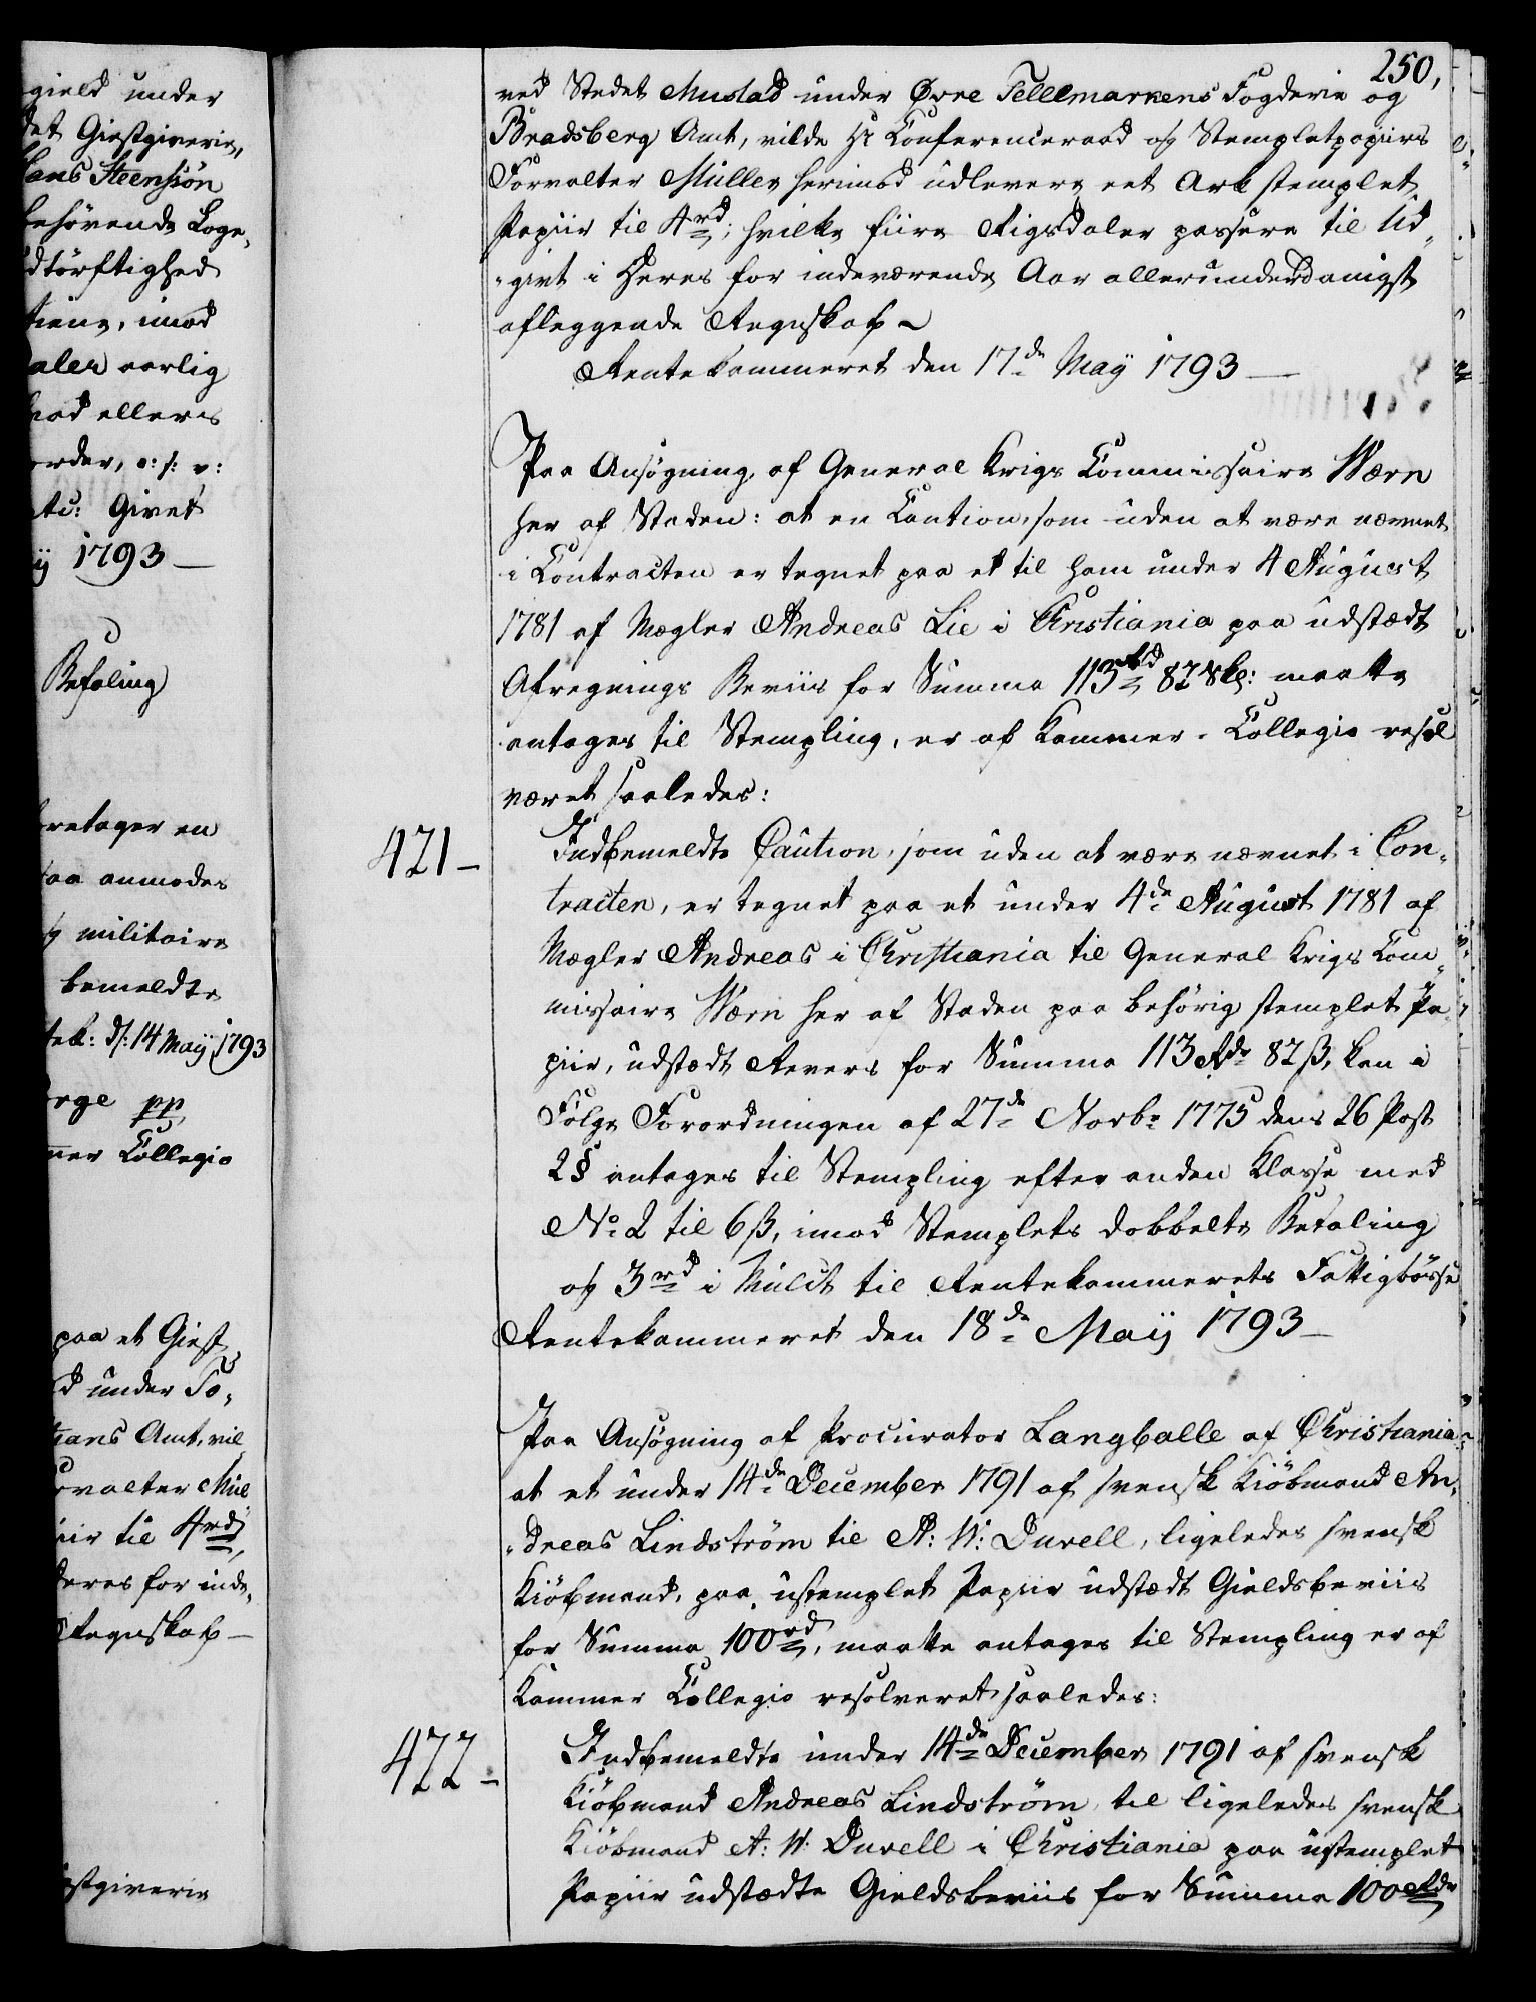 gield under
det Giestgiverie,
Hans Steensøn
behørende Loge„
dtørftighed
tiene, imod
daler aarlig
hvad ellers
order, o: s: v:
Givet
ÿ 1793 —
Befaling
foretager en
saa anmodes
og militaire
bemeldte
d: 14 Maÿ 1793
orge pp
mer Collegio
paa et Giest
d under To„
tians Amt, vil
rvalter Mül
iir til 4rd;
deres for inde„
Regnskab —
stgiverie
250,
ved Stedet Mustad under Øvre Tellemarkens Fogderie og
Bradsberg Amt, vilde Hr Conferenceraad og Stempletpapiirs
Forvalter Müller herimod udlevere eet Ark stemplet
Papiir til 4rd; hvilke fiire Rigsdaler passere til Ud„
„givt i Deres for indeværende Aar allerunderdanigst
aflæggende Regnskab —
Rentekammeret den 17de Maÿ 1793 —
Paa Ansøgning af General Krigs Commissaire Wærn
her af Staden: at en Caution, som uden at være nævnet
i Contracten er tegnet paa et til ham under 4 August
1781 af Mægler Andreas Lie i Christiania paa udstædt
Afregnings Beviis for Summa 113 Rd 82 Sk: maatte
antages til Stempling, er af Kammer-Collegio resol
veret saaledes:
421 —
Indbemeldte Caution, som uden at være nævnet i Con„
tracten, er tegnet paa et under 4de August 1781 af
Mægler Andreas i Christiania til General Krigs Com„
missaire Wærn her af Staden paa behørig stemplet Pa„
piir, udstædt Revers for Summa 113 Rdr 82 ß, kan i
Følge Forordningen af 27de Novbr 1775 dens 26 Post
2 § antages til Stempling efter anden Klasse med
No 2 til 6 ß, imod Stemplets dobbelte Betaling
og 3rd i Mulct til Rentekammerets Fattigbøsse
Rentekammeret den 18de Maÿ 1793 —
Paa Ansøgning af Procurator Langballe af Christiania
at et under 14de December 1791 af svensk Kiöbmand An„
„dreas Lindström til A: W: Duvell, ligeledes svensk
Kiöbmand, paa ustemplet Papiir udstædt Gieldsbeviis
for Summa 100rd, maatte antages til Stempling er af
Kammer Collegio resolveret saaledes:
422 —
Indbemeldte under 14de December 1791 af svensk
Kiöbmand Andreas Lindström, til ligeledes svensk
Kiöbmand A: W: Duvell i Christiania paa ustemplet
Papiir udstædte Gieldsbeviis for Summa 100 Rdr